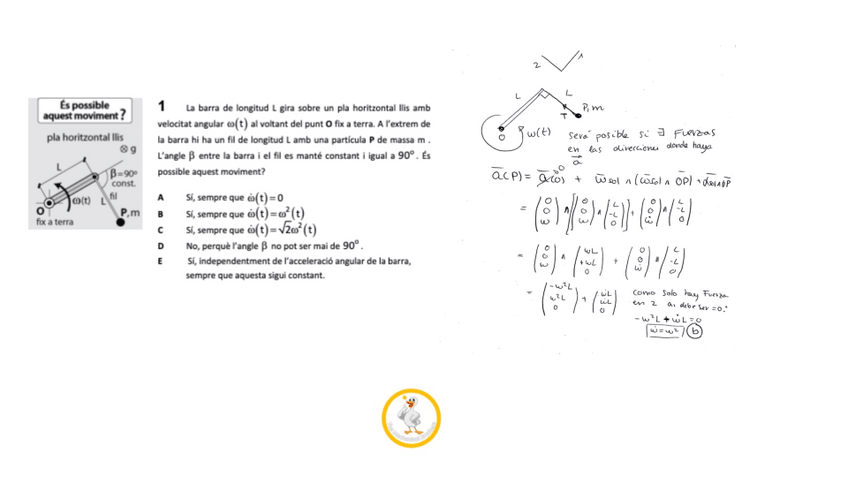 És possible
aquest moviment?
pla horitzontal llis
⊗ g
L
β=90º
const.
fil
ω(t)
L
O
P,m
fix a terra
1 La barra de longitud L gira sobre un pla horitzontal llis amb
velocitat angular ω(t) al voltant del punt O fix a terra. A l'extrem de
la barra hi ha un fil de longitud L amb una partícula P de massa m .
L'angle β entre la barra i el fil es manté constant i igual a 90º. És
possible aquest moviment?
A Sí, sempre que ω̇(t)=0
B Sí, sempre que ω̇(t)=ω²(t)
C Sí, sempre que ω̇(t)=√2ω²(t)
D No, perquè l'angle β no pot ser mai de 90º.
E Sí, independentment de l'acceleració angular de la barra,
sempre que aquesta sigui constant.
2 1
L L
P, m
T
O
ω(t)
será posible si ∃ Fuerzas
en las direcciones donde haya
a
= (0 0 ω) ∧ [(0 0 ω) ∧ (L -L 0)] + (0 0 ω̇) ∧ (L -L 0)
= (0 0 ω) ∧ (ωL +ωL 0) + (0 0 ω̇) ∧ (L -L 0)
= (-ω²L ω²L 0) + (ω̇L ω̇L 0)
como solo hay Fuerza
en 2 a₁ debe ser =0:
-ω²L + ω̇L = 0
ω̇=ω² b